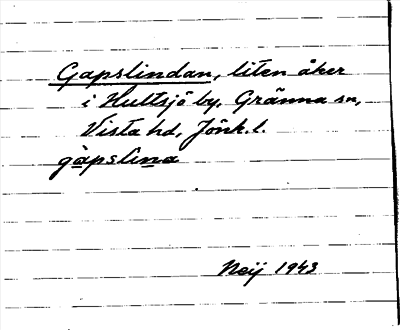 Gapslindan, liten åker
i Hultsjö by, Gränna sn,
Vista hd, Jönk. l.
gàpslina
Neij 1943